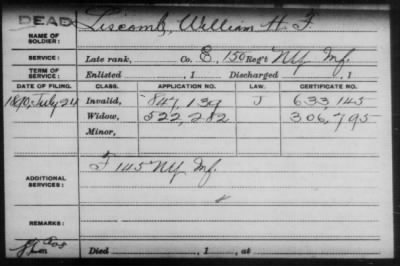 DEAD
Liscomb, William H. F.
NAME OF SOLDIER:
SERVICE: Late rank, Co. E, 150 Reg't NY Inf.
TERM OF SERVICE: Enlisted , 1 Discharged , 1
DATE OF FILING. CLASS. APPLICATION NO. LAW. CERTIFICATE NO.
1890, July 24 Invalid, 847,139 J 633,145
Widow, 522,282 306,795
Minor,
F 145 NY Inf.
ADDITIONAL SERVICES:
REMARKS:
Died , 1 , at